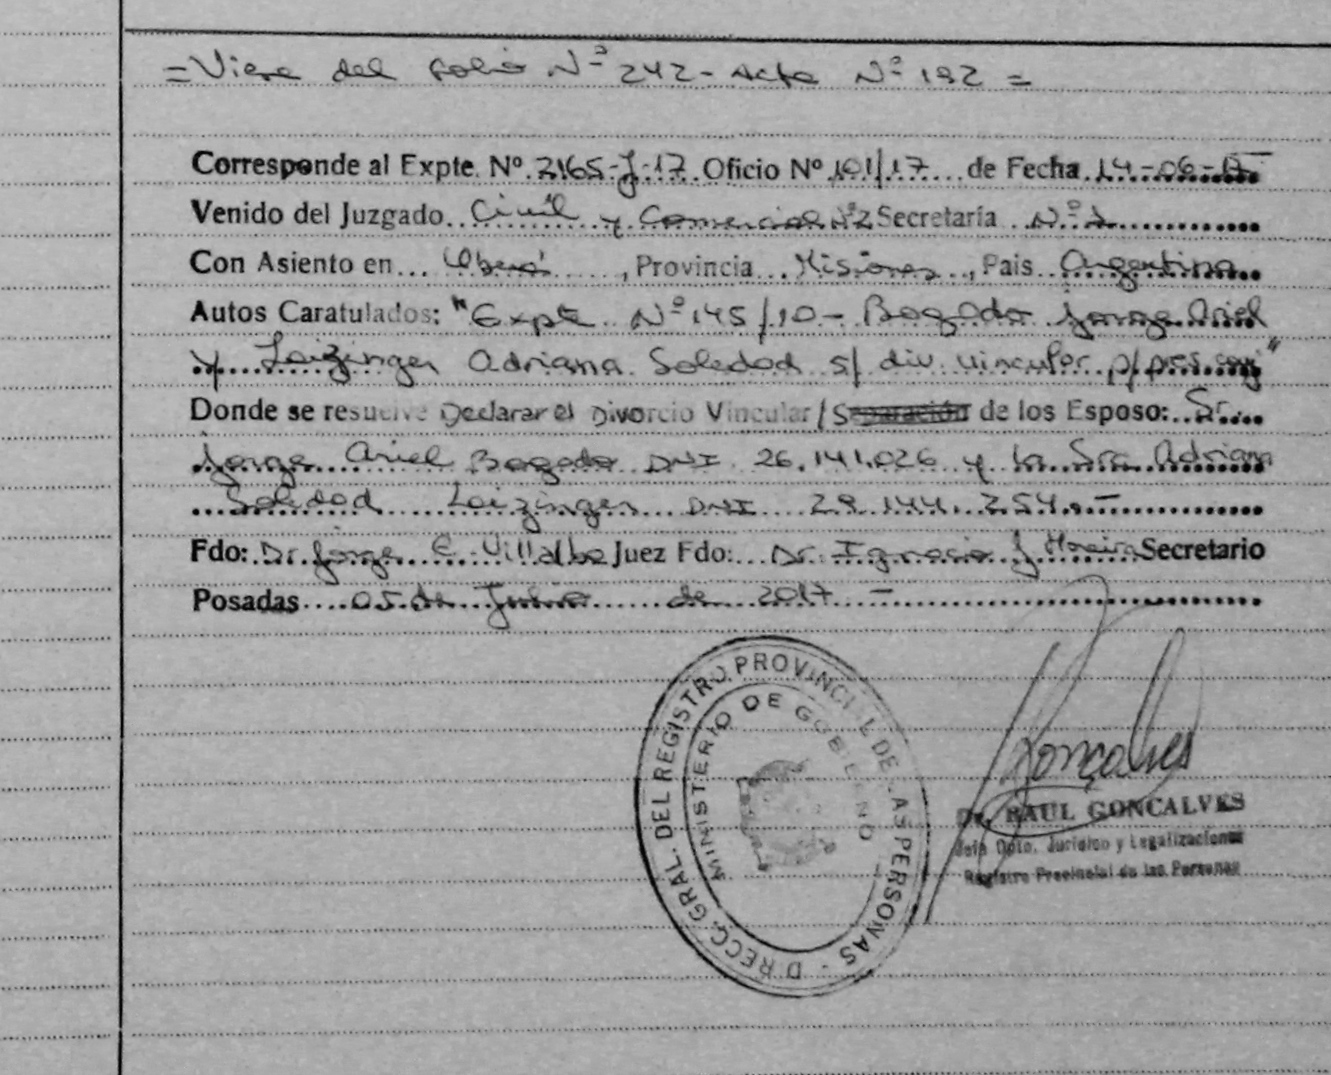 = Viene del folio Nº 242 - Acta Nº 192 =
Corresponde al Expte. Nº 2165-J-17 Oficio Nº 101/17 de Fecha 14-06-17
Venido del Juzgado Civil y Comercial Nº2 Secretaría Nº 2
Con Asiento en Oberá, Provincia Misiones, Pais Argentina
Autos Caratulados: "Expte Nº 145/10 - Bogado Jorge Ariel
y Loizinger Adriana Soledad s/ div. vincular p/pres. conj"
Donde se resuelve Declarar el Divorcio Vincular/Separación de los Esposo: Sr.
Jorge Ariel Bogado DNI 26.141.026 y la Sra Adriana
Soledad Loizinger DNI 28.144.254.-
Fdo: Dr. Jorge E. Villalba Juez Fdo: Dr. Ignacio J Moreira Secretario
Posadas 05 de Julio de 2017 -
DIRECC. GRAL. DEL REGISTRO PROVINCIAL DE LAS PERSONAS -
MINISTERIO DE GOBIERNO
Goncalves
Dr. RAUL GONCALVES
Jefe Dpto. Jurídico y Legalizaciones
Registro Provincial de las Personas